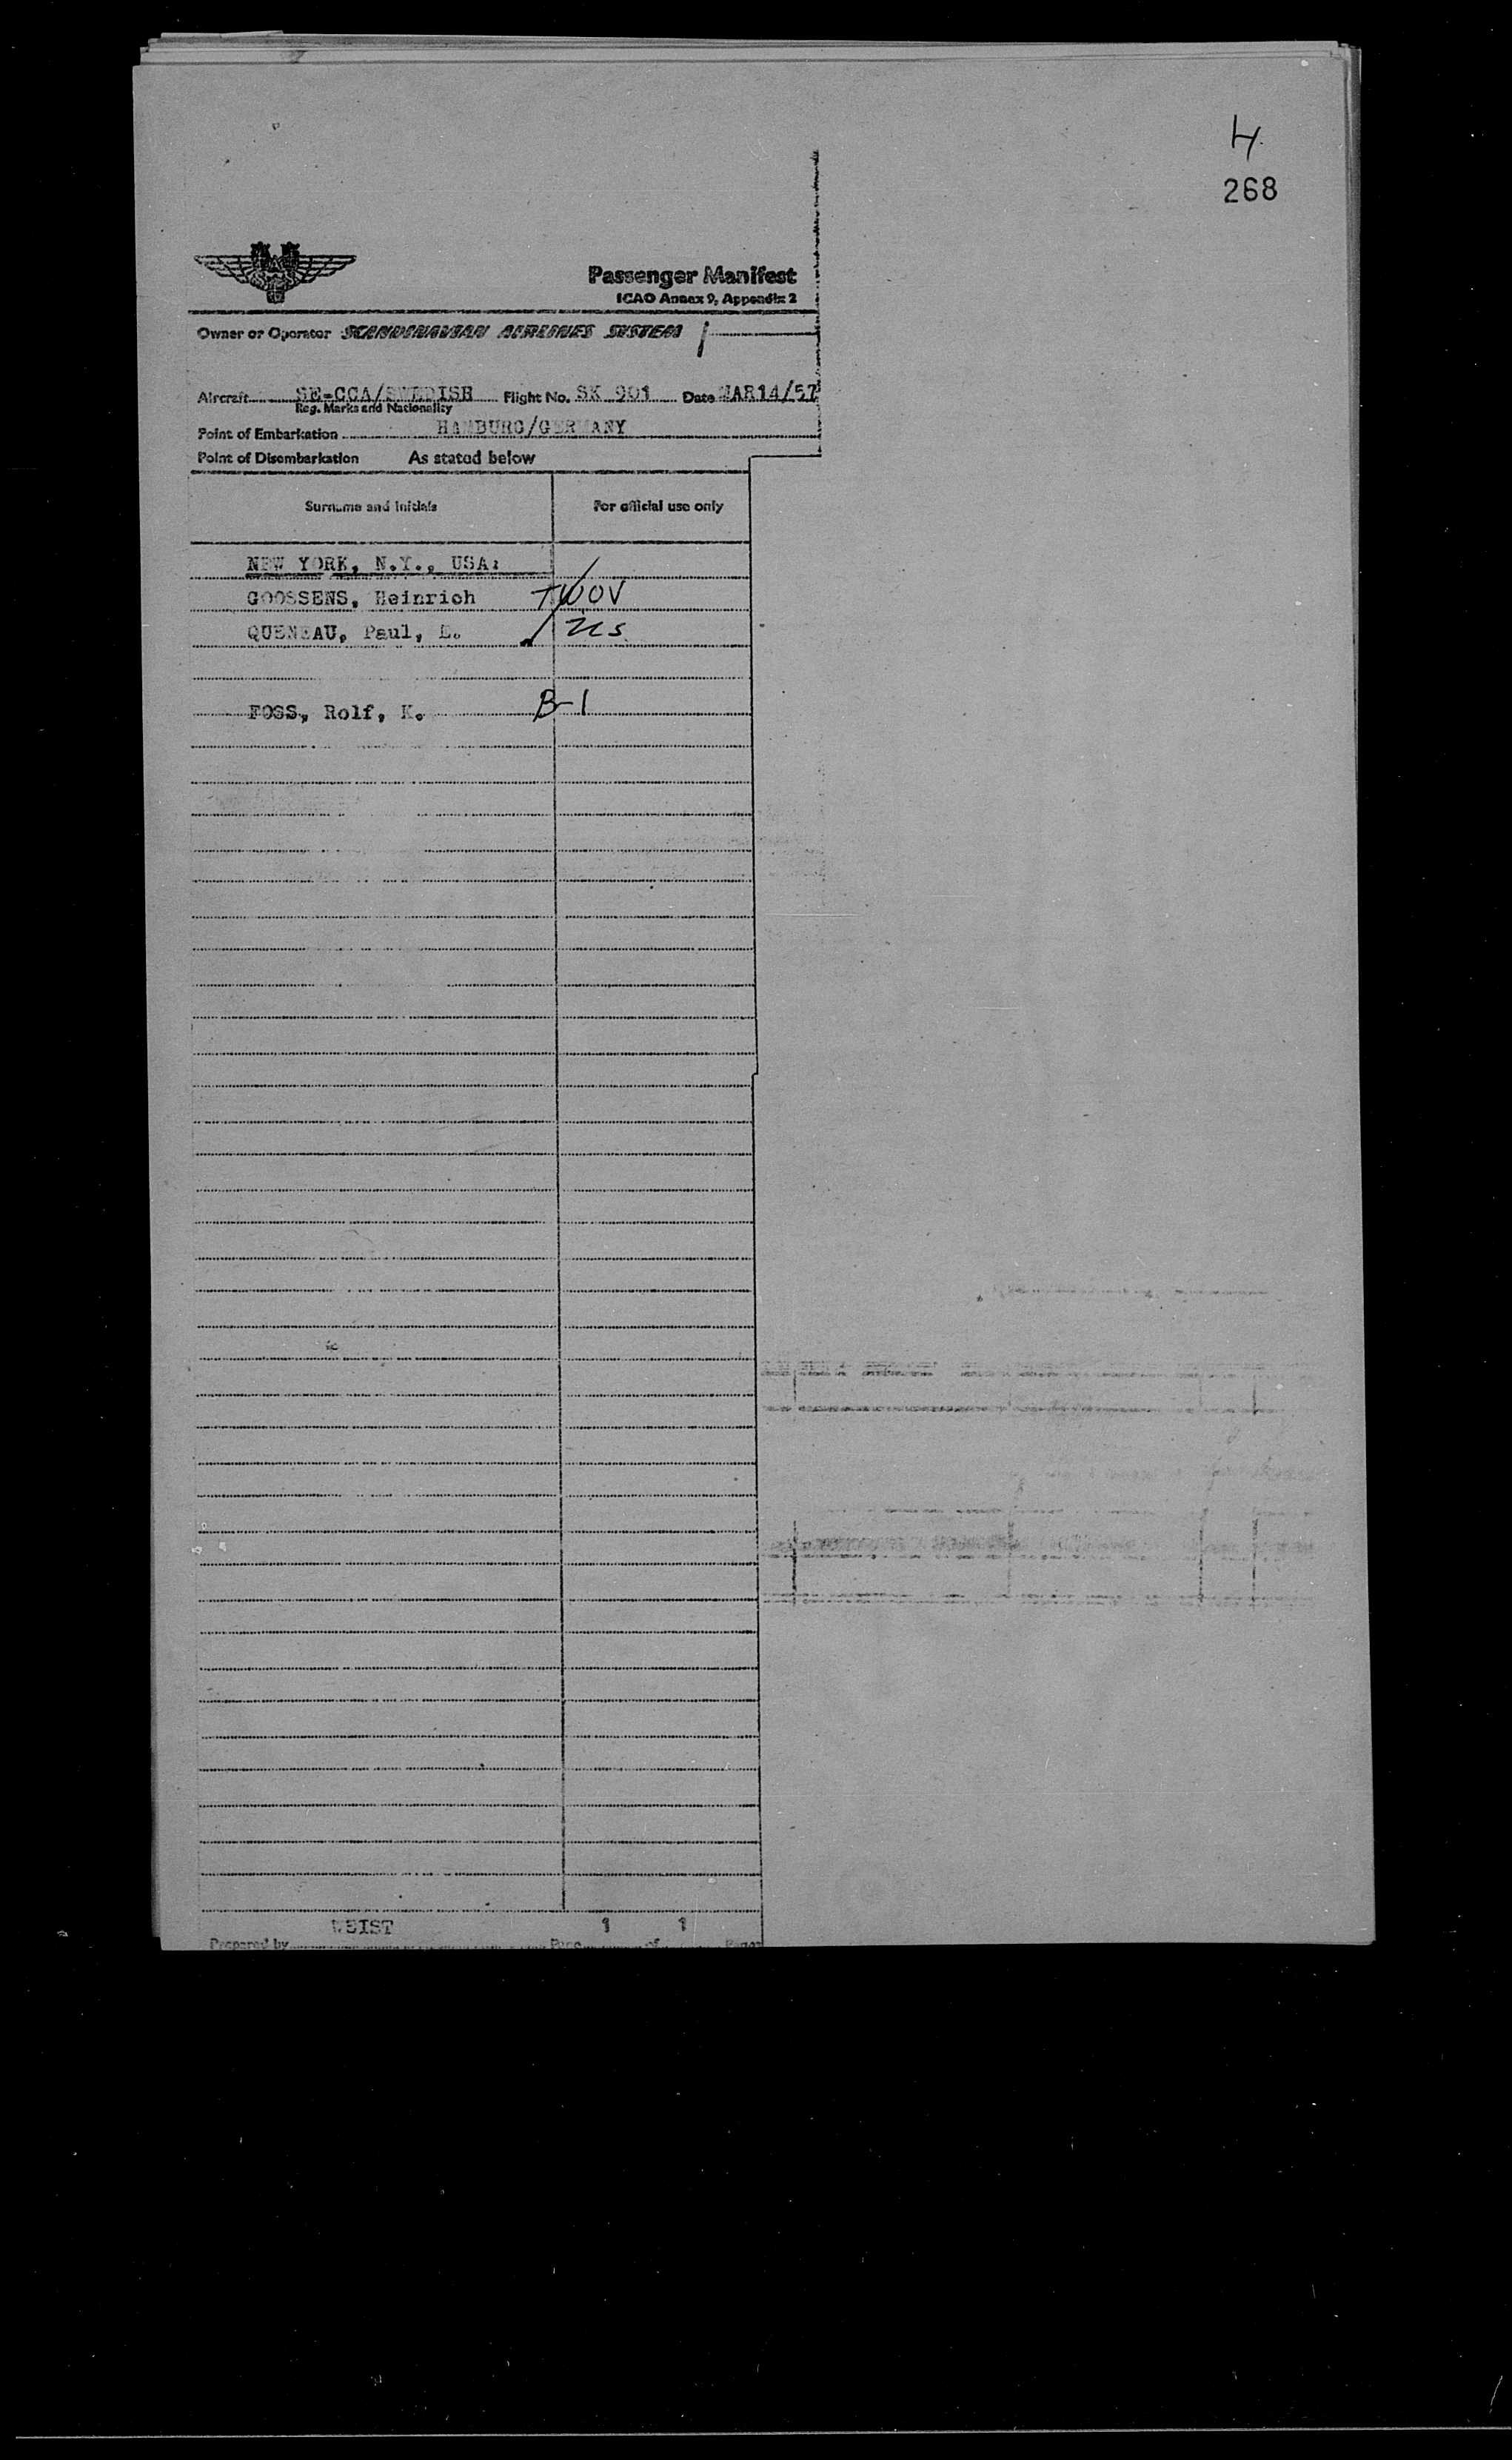 H
268
Passenger Manifest
ICAO Annex 9, Appendix 2
Owner or Operator SCANDINAVIAN AIRLINES SYSTEM
Aircraft SE-CCA/SWEDISH Flight No. SK 901 Date MAR14/57
Reg. Marks and Nationality
Point of Embarkation HAMBURG/GERMANY
Point of Disembarkation As stated below
Surname and Initials For official use only
NEW YORK, N.Y., USA:
GOOSSENS, Heinrich TWOV
QUENEAU, Paul, E. US
FOSS, Rolf, K. B-1
1 1
Prepared by Page of Pages